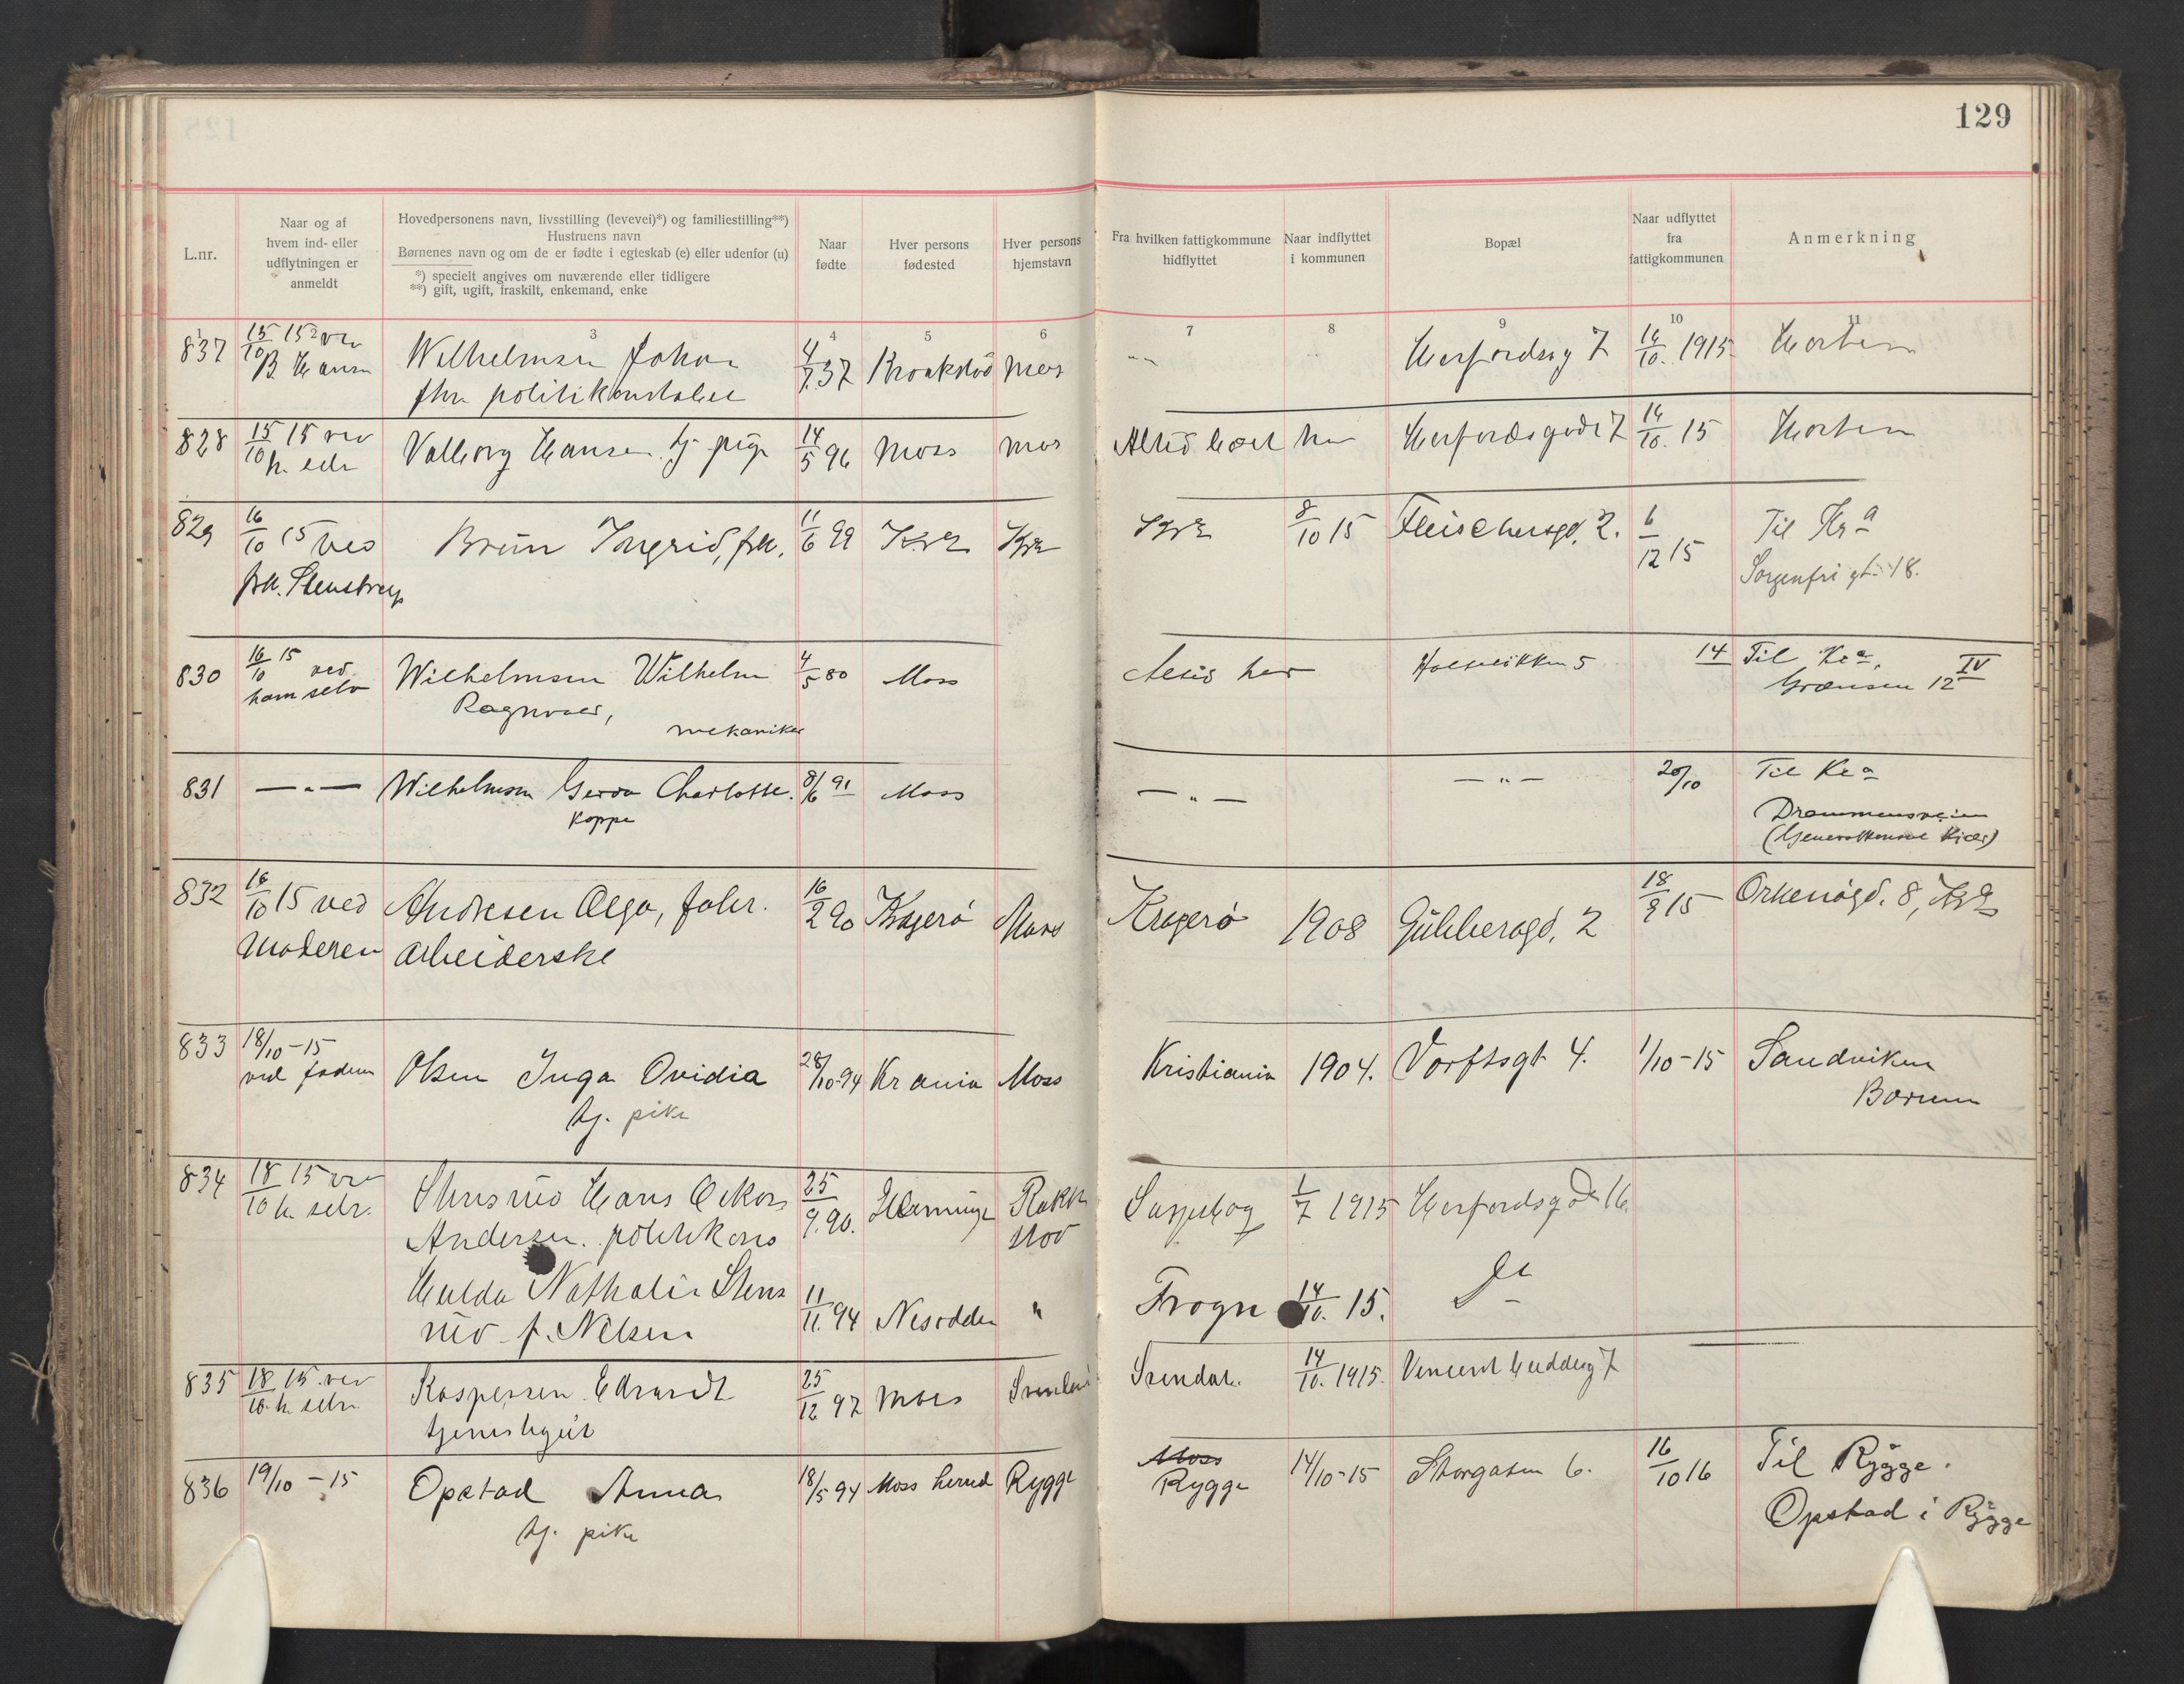 129
L.nr.
Naar og af hvem ind- eller udflytningen er anmeldt
Hovedpersonens navn, livsstilling (levevei)*) og familiestilling**)
Hustruens navn
Børnenes navn og om de er fødte i egteskab (e) eller udenfor (u)
*) specielt angives om nuværende eller tidligere
**) gift, ugift, fraskilt, enkemand, enke
Naar fødte
Hver persons fødested
Hver persons hjemstavn
Fra hvilken fattigkommune hidflyttet
Naar indflyttet i kommunen
Bopæl
Naar udflyttet fra fattigkommunen
Anmerkning
1 2 3 4 5 6 7 8 9 10 11
837 15/10 15 Wilhelmsen Johan 4/7.37 Mos 7 14/10. 1915 Horten
828 15/10 15 ved Valborg Hansen tj. pige 14/5 96 Moss Mos Altid boet her 7 14/10. 15 Horten
829 16/10 15 ved Brün Ingrid, frk. 11/6 99 Kra Kra Kra 8/10 15 Fleischersgd. 2. 6/12 15 Til Kra
frk. Stenstrup Sorgenfri gt. 18.
830 16/10 15 ved Wilhelmsen Wilhelm 4/5 80 Moss Altid her 5 14 Til Kra.
ham selv Ragnvald, Grænsen 12 IV
mekaniker
831 — " — Wilhelmsen Gerda Charlotte. 8/6 91 Moss — " — — " — 20/10 Til Kra
Koppe Drammensveien
(Generalkonsul Kiær)
832 16/10 15 ved Andresen Olga, fabr. 16/2 90 Kragerø Moss Kragerø 1908 Gühbersgd. 2 18/9 15 8, Kra
Moderen arbeiderske
833 18/10-15 Olsen Inga Ovidia 28/10-94 Kr ania Moss Kristiania 1904. Vorftsgt 4. 1/10-15 Sandviken
ved faderen tj. pike Bærum
834 18/10 15 Hans Oskar 25/9.90. 1/7 1915 16.
h. selv. Andersen. politikons
Hulda Nathalie
f. Nilsen 11/11.94 Nesodden " Frogn 14/10. 15. Do
835 18/10. 15 ved Kaspersen Edvardt 25/12 97 Moss 14/10. 1915. Vincent 7
h. selv tjenestegut
836 19/10-15 Opstad Anna 18/5 94 Moss herred Rygge Moss 14/10-15 Storgaten 6. 16/10 16 Til Rygge.
tj. pike Rygge Opstad i Rygge